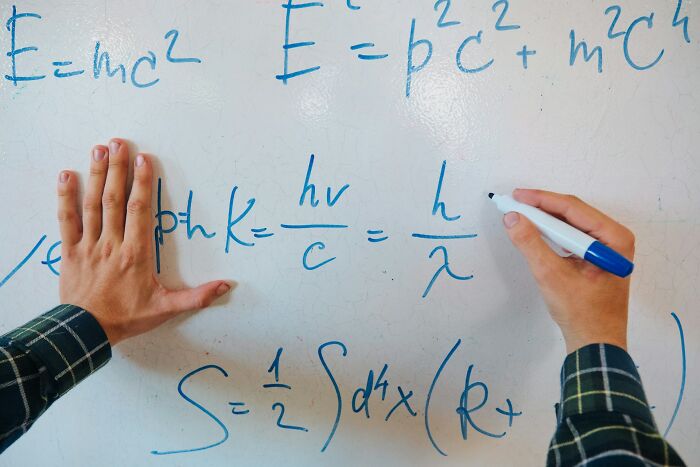 E = mc² E² = p²c² + m²C⁴
p = h K = hν/c = h/λ
S = 1/2 ∫ d⁴x ( R +